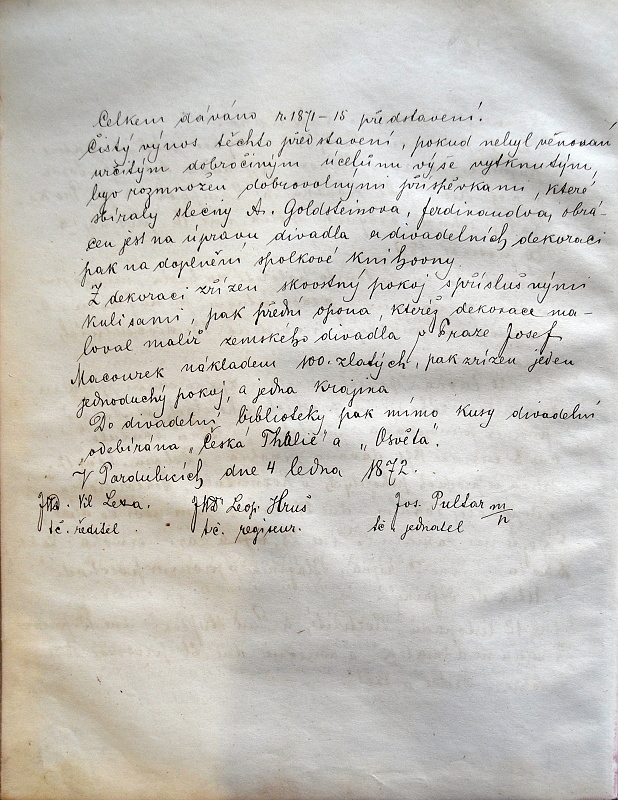 Celkem dáváno r. 1871 – 15 představení.
Čistý výnos těchto představení, pokud nebyl věnován
určitým dobročiným účelům výše vytknutým,
byv rozmnožen dobrovolnými příspěvkami, které
sbíraly slečny A. Goldsteinova, Ferdinandova, obrá-
cen jest na úpravu divadla a divadelních dekorací
pak na doplnění spolkové knihovny
Z dekorací zřízen skvostný pokoj s příslušnými
kulisami, pak přední opona, kteréž dekorace ma-
loval malíř zemského divadla v Praze Josef
Macourek nákladem 100. zlatých, pak zřízen jeden
jednoduchý pokoj, a jedna krajina
Do divadelní biblioteky pak mimo kusy divadelní
odebírána „Česká Thalie" a „Osvěta".
V Pardubicích dne 4 ledna 1872.
JUD. Vil Lexa. JUDr Leop. Hruš Jos. Pultar m/p
tč. ředitel. tč. regiseur. tč jednatel